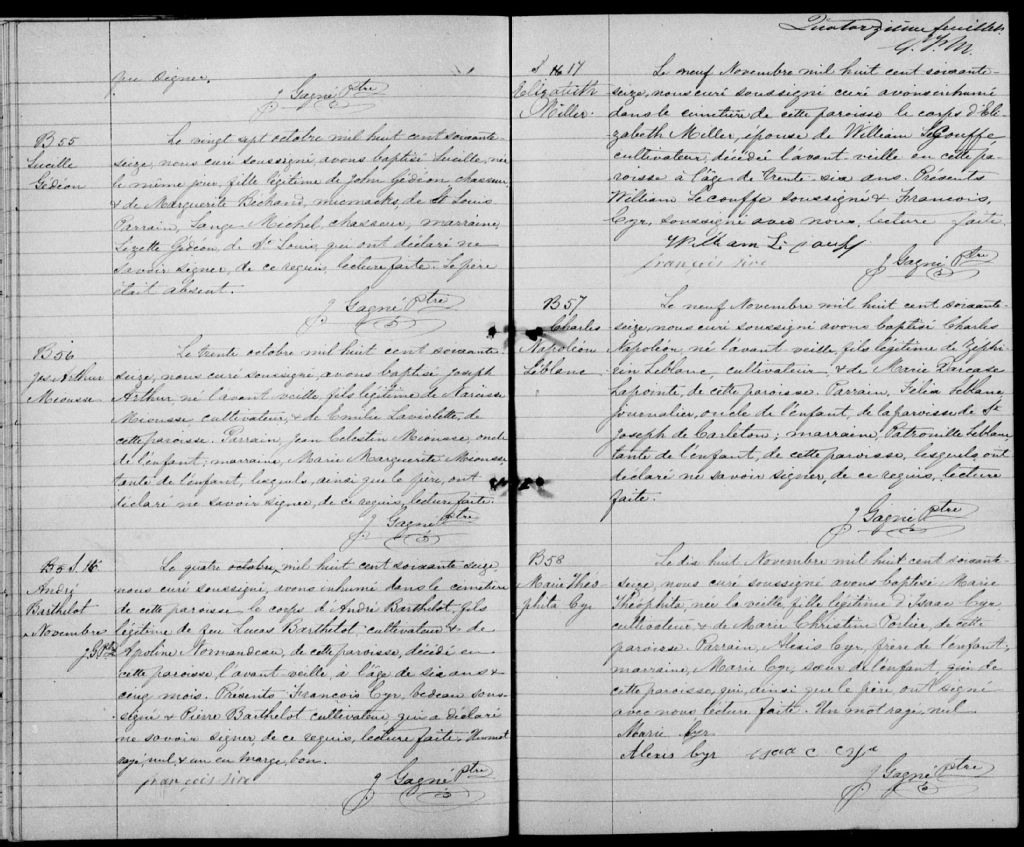 pu signer.
J Gagné Ptre
B 55
Lucille
Gédéon
Le vingt sept octobre mil huit cent soixante-
seize, nous curé soussigné, avons baptisé Lucille, née
le même jour, fille légitime de John Gédéon chasseur,
& de Marguerite Béchand, micmacks, de St Louis
Parrain, Lange Michel, chasseur, marraine,
Lezette Gédéon, de St Louis, qui ont déclaré ne
savoir signer, de ce requis, lecture faite. Le père
était absent.
J Gagné Ptre
B 56
Jos. Arthur
Miousse
Le trente octobre mil huit cent soixante-
seize, nous curé soussigné, avons baptisé Joseph
Arthur né l'avant veille, fils légitime de Narcisse
Miousse cultivateur, & de Emilie Laviolette, de
cette paroisse. Parrain, Jean Célestin Miousse, oncle
de l'enfant; marraine, Marie Marguerite Miousse,
tante de l'enfant, lesquels, ainsi que le père, ont
déclaré ne savoir signer, de ce requis, lecture faite.
J Gagné Ptre
S. 16
André
Barthelot
Novembre
J G Ptre
Le quatre octobre, mil huit cent soixante seize,
nous curé soussigné, avons inhumé dans le cimetière
de cette paroisse le corps d'André Barthelot, fils
légitime de feu Lucas Barthelot cultivateur & de
Apoline Normandeau, de cette paroisse, décédé en
cette paroisse l'avant veille, à l'âge de six ans &
cinq mois. Présents Francois Cyr, bedeau sous-
signé & Pierre Barthelot cultivateur, qui a déclaré
ne savoir signer, de ce requis, lecture faite. Un mot
rayé, nul & un en marge, bon.
françois sire
J Gagné Ptre
Quatorzième feuillet.
S 17
Elizabeth
Miller.
Le neuf Novembre mil huit cent soixante-
seize, nous curé soussigné curé avons inhumé
dans le cimetière de cette paroisse le corps d'Eli-
zabeth Meller, épouse de William LeCouffe
cultivateur, décédée l'avant-veille en cette pa-
roisse à l'âge de trente-six ans. Présents
William Lecouffe soussigné & Francois,
Cyr, soussigné avec nous, lecture faite.
William Le couff
françois sire
J Gagné Ptre
B 57
Charles
Napoléon
Leblanc
Le neuf Novembre mil huit cent soixante-
seize, nous curé soussigné avons baptisé Charles
Napoléon, né l'avant veille, fils légitime de Zéphi-
rin Leblanc, cultivateur, & de Marie Parcase
Lapointe, de cette paroisse. Parrain, Félix Leblanc
journalier, oncle de l'enfant, de la paroisse de St
Joseph de Carleton; marraine, Patronille Leblanc
tante de l'enfant, de cette paroisse, lesquels, ont
déclaré ne savoir signer, de ce requis, lecture
faite.
J Gagné Ptre
B 58
Marie Théo-
phita Cyr
Le dix huit Novembre mil huit cent soixante-
seize, nous curé soussigné avons baptisé Marie
Théophita, née la veille, fille légitime d'Isaac Cyr,
cultivateur & de Marie Christin Porlier, de cette
paroisse. Parrain, Alexis Cyr, frère de l'enfant,
marraine, Marie Cyr, sœur de l'enfant, qui de
cette paroisse, qui, ainsi que le père, ont signé
avec nous lecture faite. Un mot rayé, nul
Marie Cyr
Alexis Cyr
J Gagné Ptre